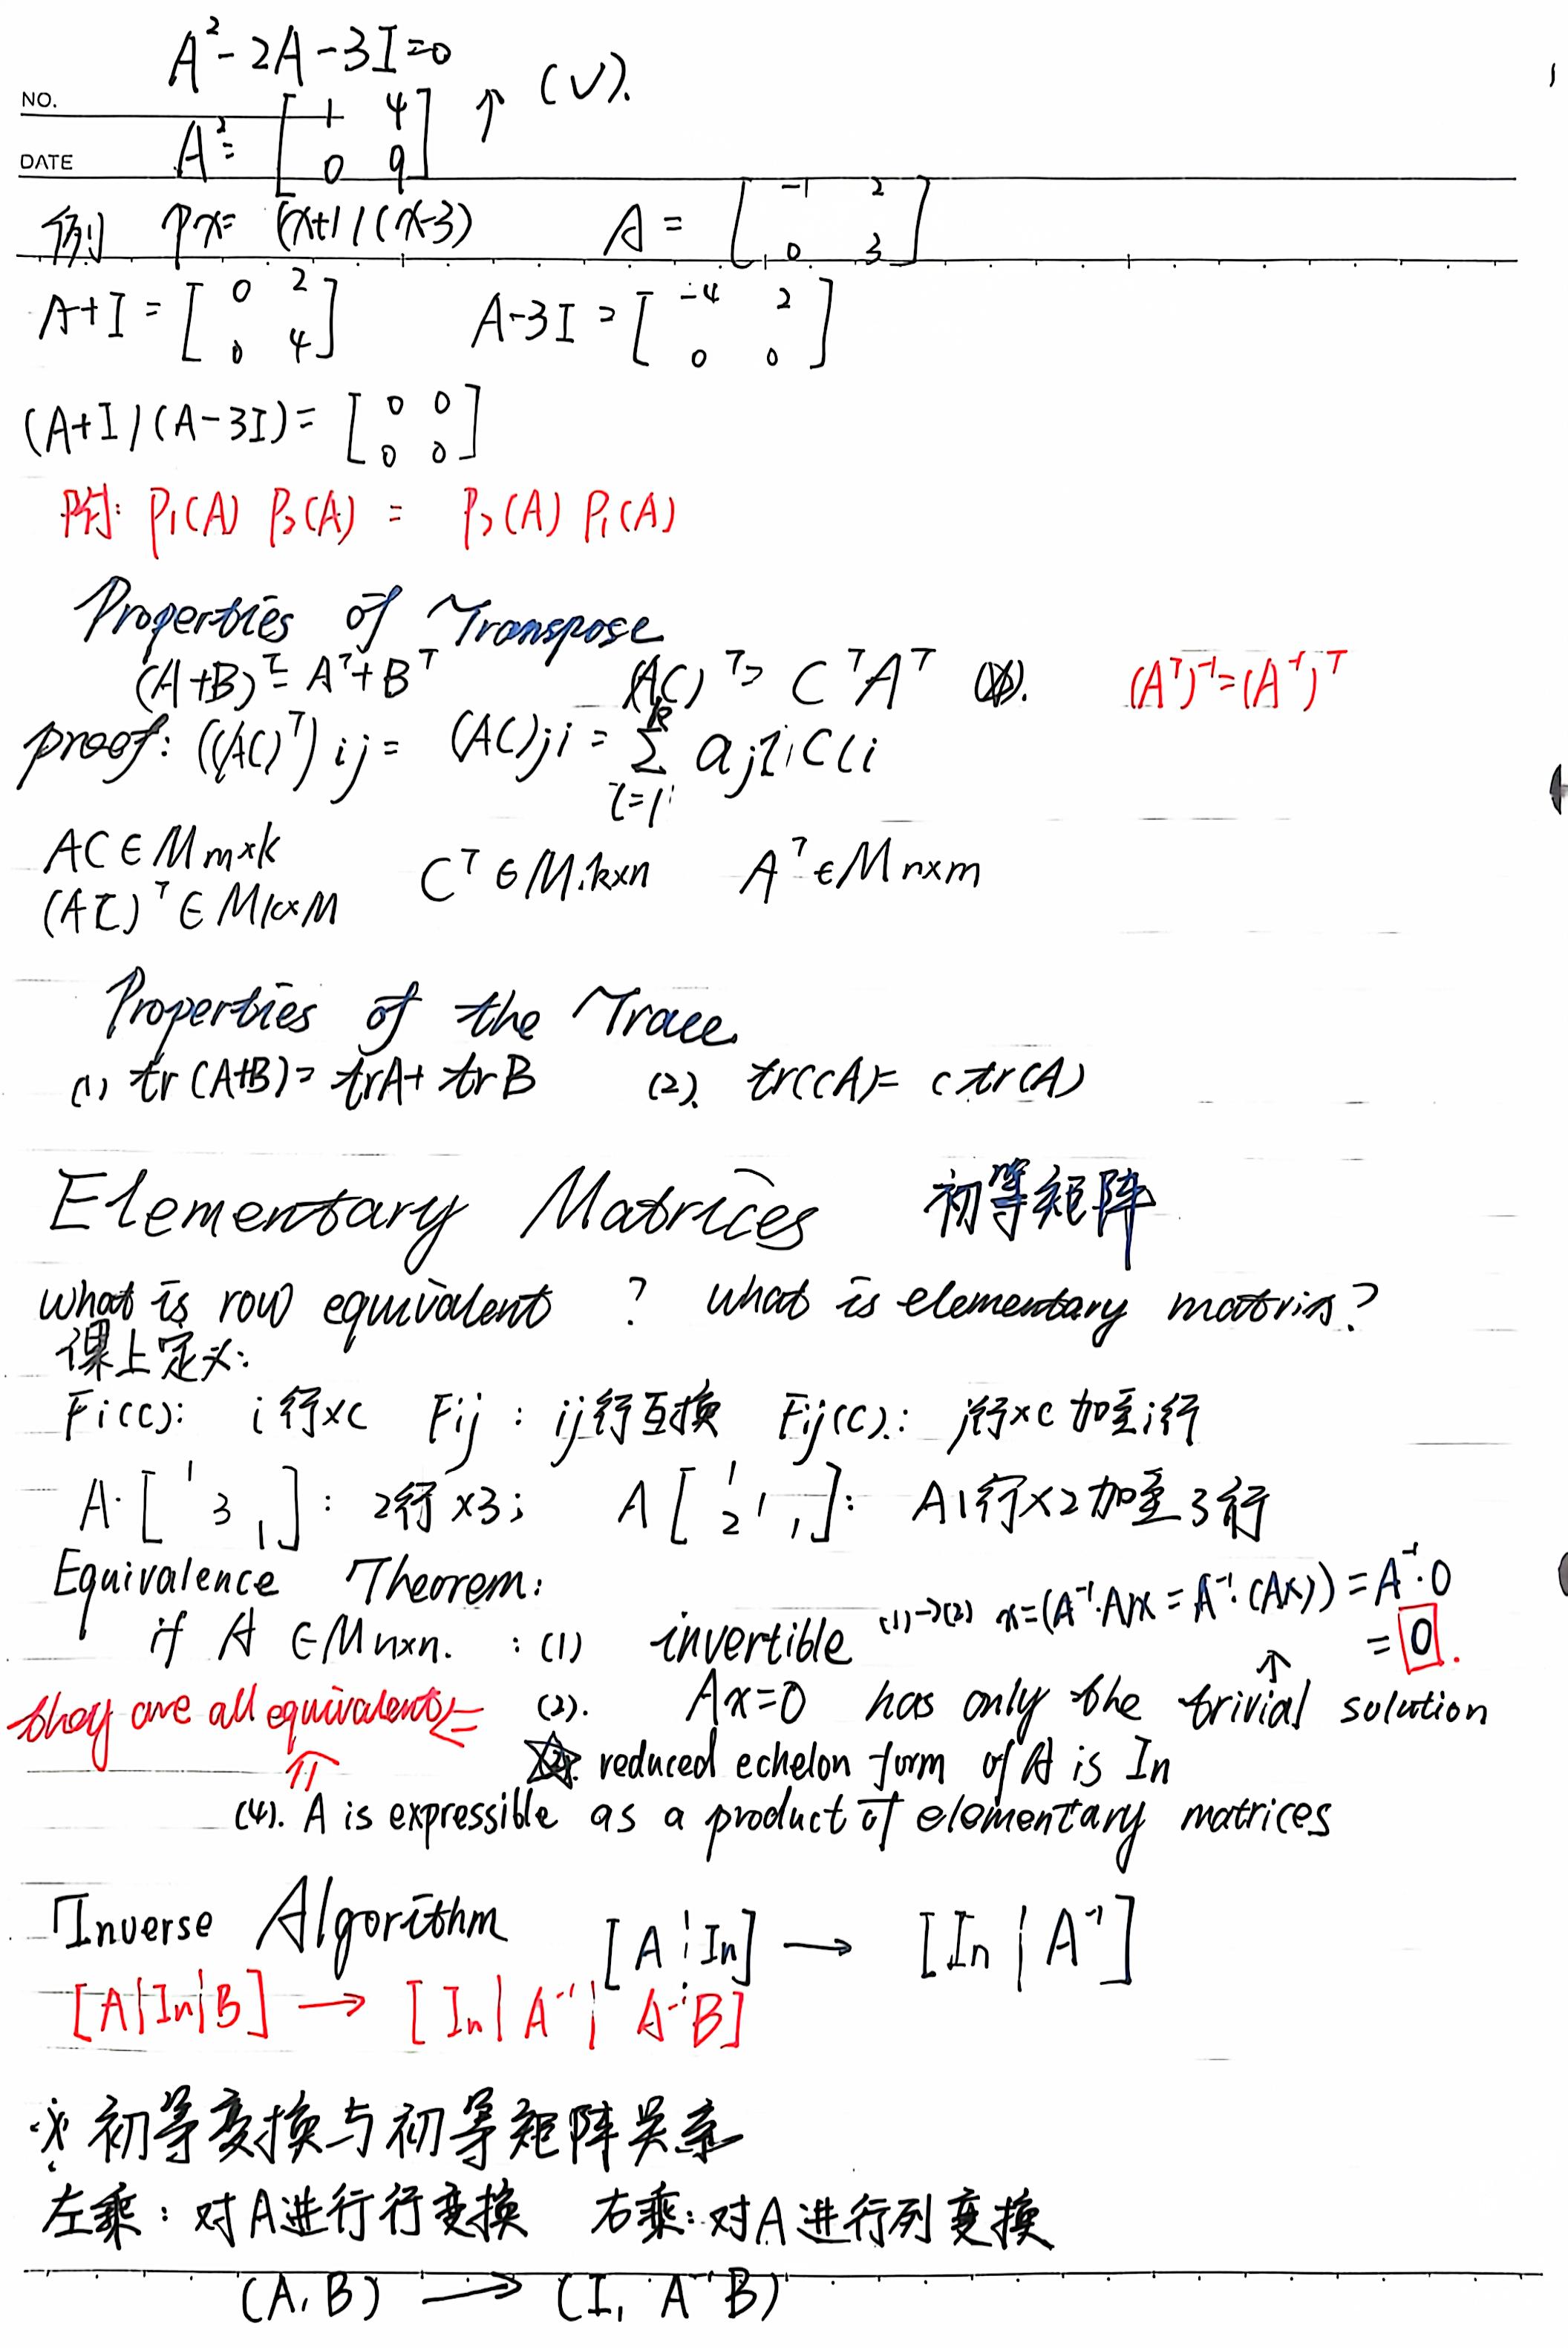 A²-2A-3I=0
NO.
A²= [1 4; 0 9] ↑ (√).
DATE
例 Px= (x+1)(x-3) A = [-1 2; 0 3]
A+I = [0 2; 0 4] A-3I = [-4 2; 0 0]
(A+I)(A-3I) = [0 0; 0 0]
附: P₁(A) P₂(A) = P₂(A) P₁(A)
Properties of Transpose
(A+B)ᵀ= Aᵀ+Bᵀ (AC)ᵀ= CᵀAᵀ . (Aᵀ)⁻¹=(A⁻¹)ᵀ
proof: ((AC)ᵀ) ij = (AC)ji = Σ ajl Cli
l=1
AC∈Mm×k Cᵀ∈Mk×n Aᵀ∈Mn×m
(AC)ᵀ∈Mk×M
Properties of the Trace
(1) tr(A+B)= trA+ trB (2). tr(cA)= c tr(A)
Elementary Matrices 初等矩阵
what is row equivalent ? what is elementary matrix?
课上定义:
Fi(c): i行×c Fij : ij行互换 Fij(c): j行×c 加至i行
A·[1 3 1]: 2行×3; A[1 2 1 1]: A1行×2加至3行
Equivalence Theorem:
if A ∈Mn×n. : (1) invertible (1)→(2) x=(A⁻¹·A)x = A⁻¹·(Ax)) = A⁻¹·0
= 0.
they are all equivalent ⇐ (2). Ax=0 has only the trivial solution ↑
⇑ reduced echelon form of A is In
(4). A is expressible as a product of elementary matrices
Inverse Algorithm [A|In] → [In | A⁻¹]
[A|In|B] → [In| A⁻¹| A⁻¹B]
※ 初等变换与初等矩阵关系
左乘: 对A进行行变换 右乘: 对A进行列变换
(A, B) → (I, A⁻¹B)